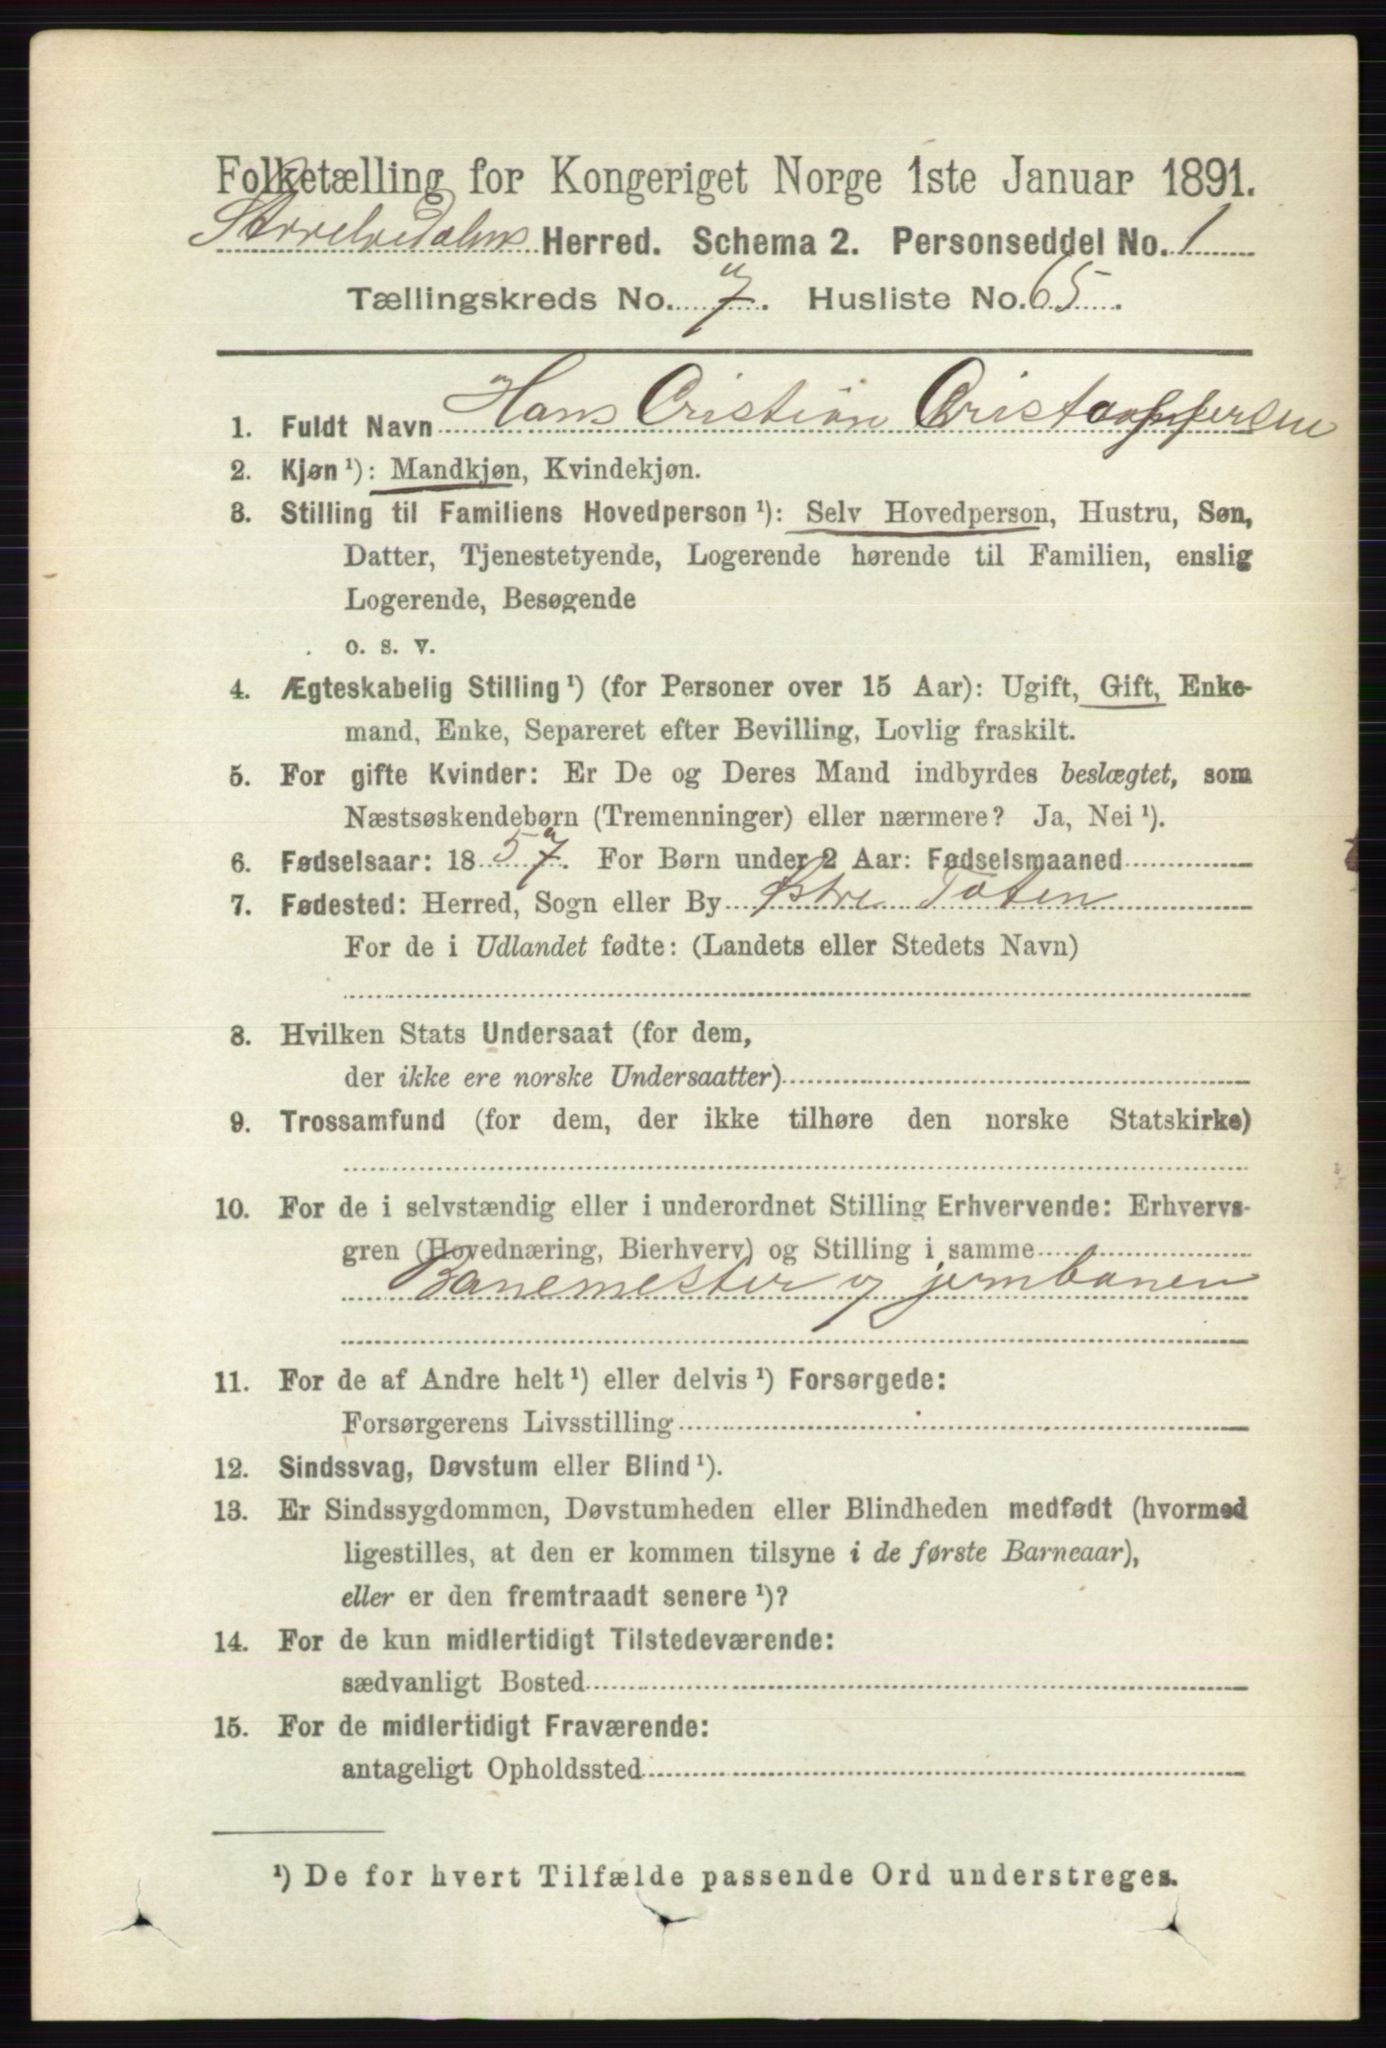 Folketælling for Kongeriget Norge 1ste Januar 1891.
Storelvedalens Herred. Schema 2. Personseddel No. 1
Tællingskreds No. 7. Husliste No. 65.
1. Fuldt Navn Hans Cristian Cristoppersen
2. Kjøn ¹): Mandkjøn, Kvindekjøn.
3. Stilling til Familiens Hovedperson ¹): Selv Hovedperson, Hustru, Søn,
Datter, Tjenestetyende, Logerende hørende til Familien, enslig
Logerende, Besøgende
o. s. v.
4. Ægteskabelig Stilling ¹) (for Personer over 15 Aar): Ugift, Gift, Enke-
mand, Enke, Separeret efter Bevilling, Lovlig fraskilt.
5. For gifte Kvinder: Er De og Deres Mand indbyrdes beslægtet, som
Næstsøskendebørn (Tremenninger) eller nærmere? Ja, Nei ¹).
6. Fødselsaar: 1857. For Børn under 2 Aar: Fødselsmaaned
7. Fødested: Herred, Sogn eller By Østre Toten
For de i Udlandet fødte: (Landets eller Stedets Navn)
8. Hvilken Stats Undersaat (for dem,
der ikke ere norske Undersaatter)
9. Trossamfund (for dem, der ikke tilhøre den norske Statskirke)
10. For de i selvstændig eller i underordnet Stilling Erhvervende: Erhvervs-
gren (Hovednæring, Bierhverv) og Stilling i samme
Banemester v jernbanen
11. For de af Andre helt ¹) eller delvis ¹) Forsørgede:
Forsørgerens Livsstilling
12. Sindssvag, Døvstum eller Blind ¹).
13. Er Sindssygdommen, Døvstumheden eller Blindheden medfødt (hvormed
ligestilles, at den er kommen tilsyne i de første Barneaar),
eller er den fremtraadt senere ¹)?
14. For de kun midlertidigt Tilstedeværende:
sædvanligt Bosted
15. For de midlertidigt Fraværende:
antageligt Opholdssted
¹) De for hvert Tilfælde passende Ord understreges.